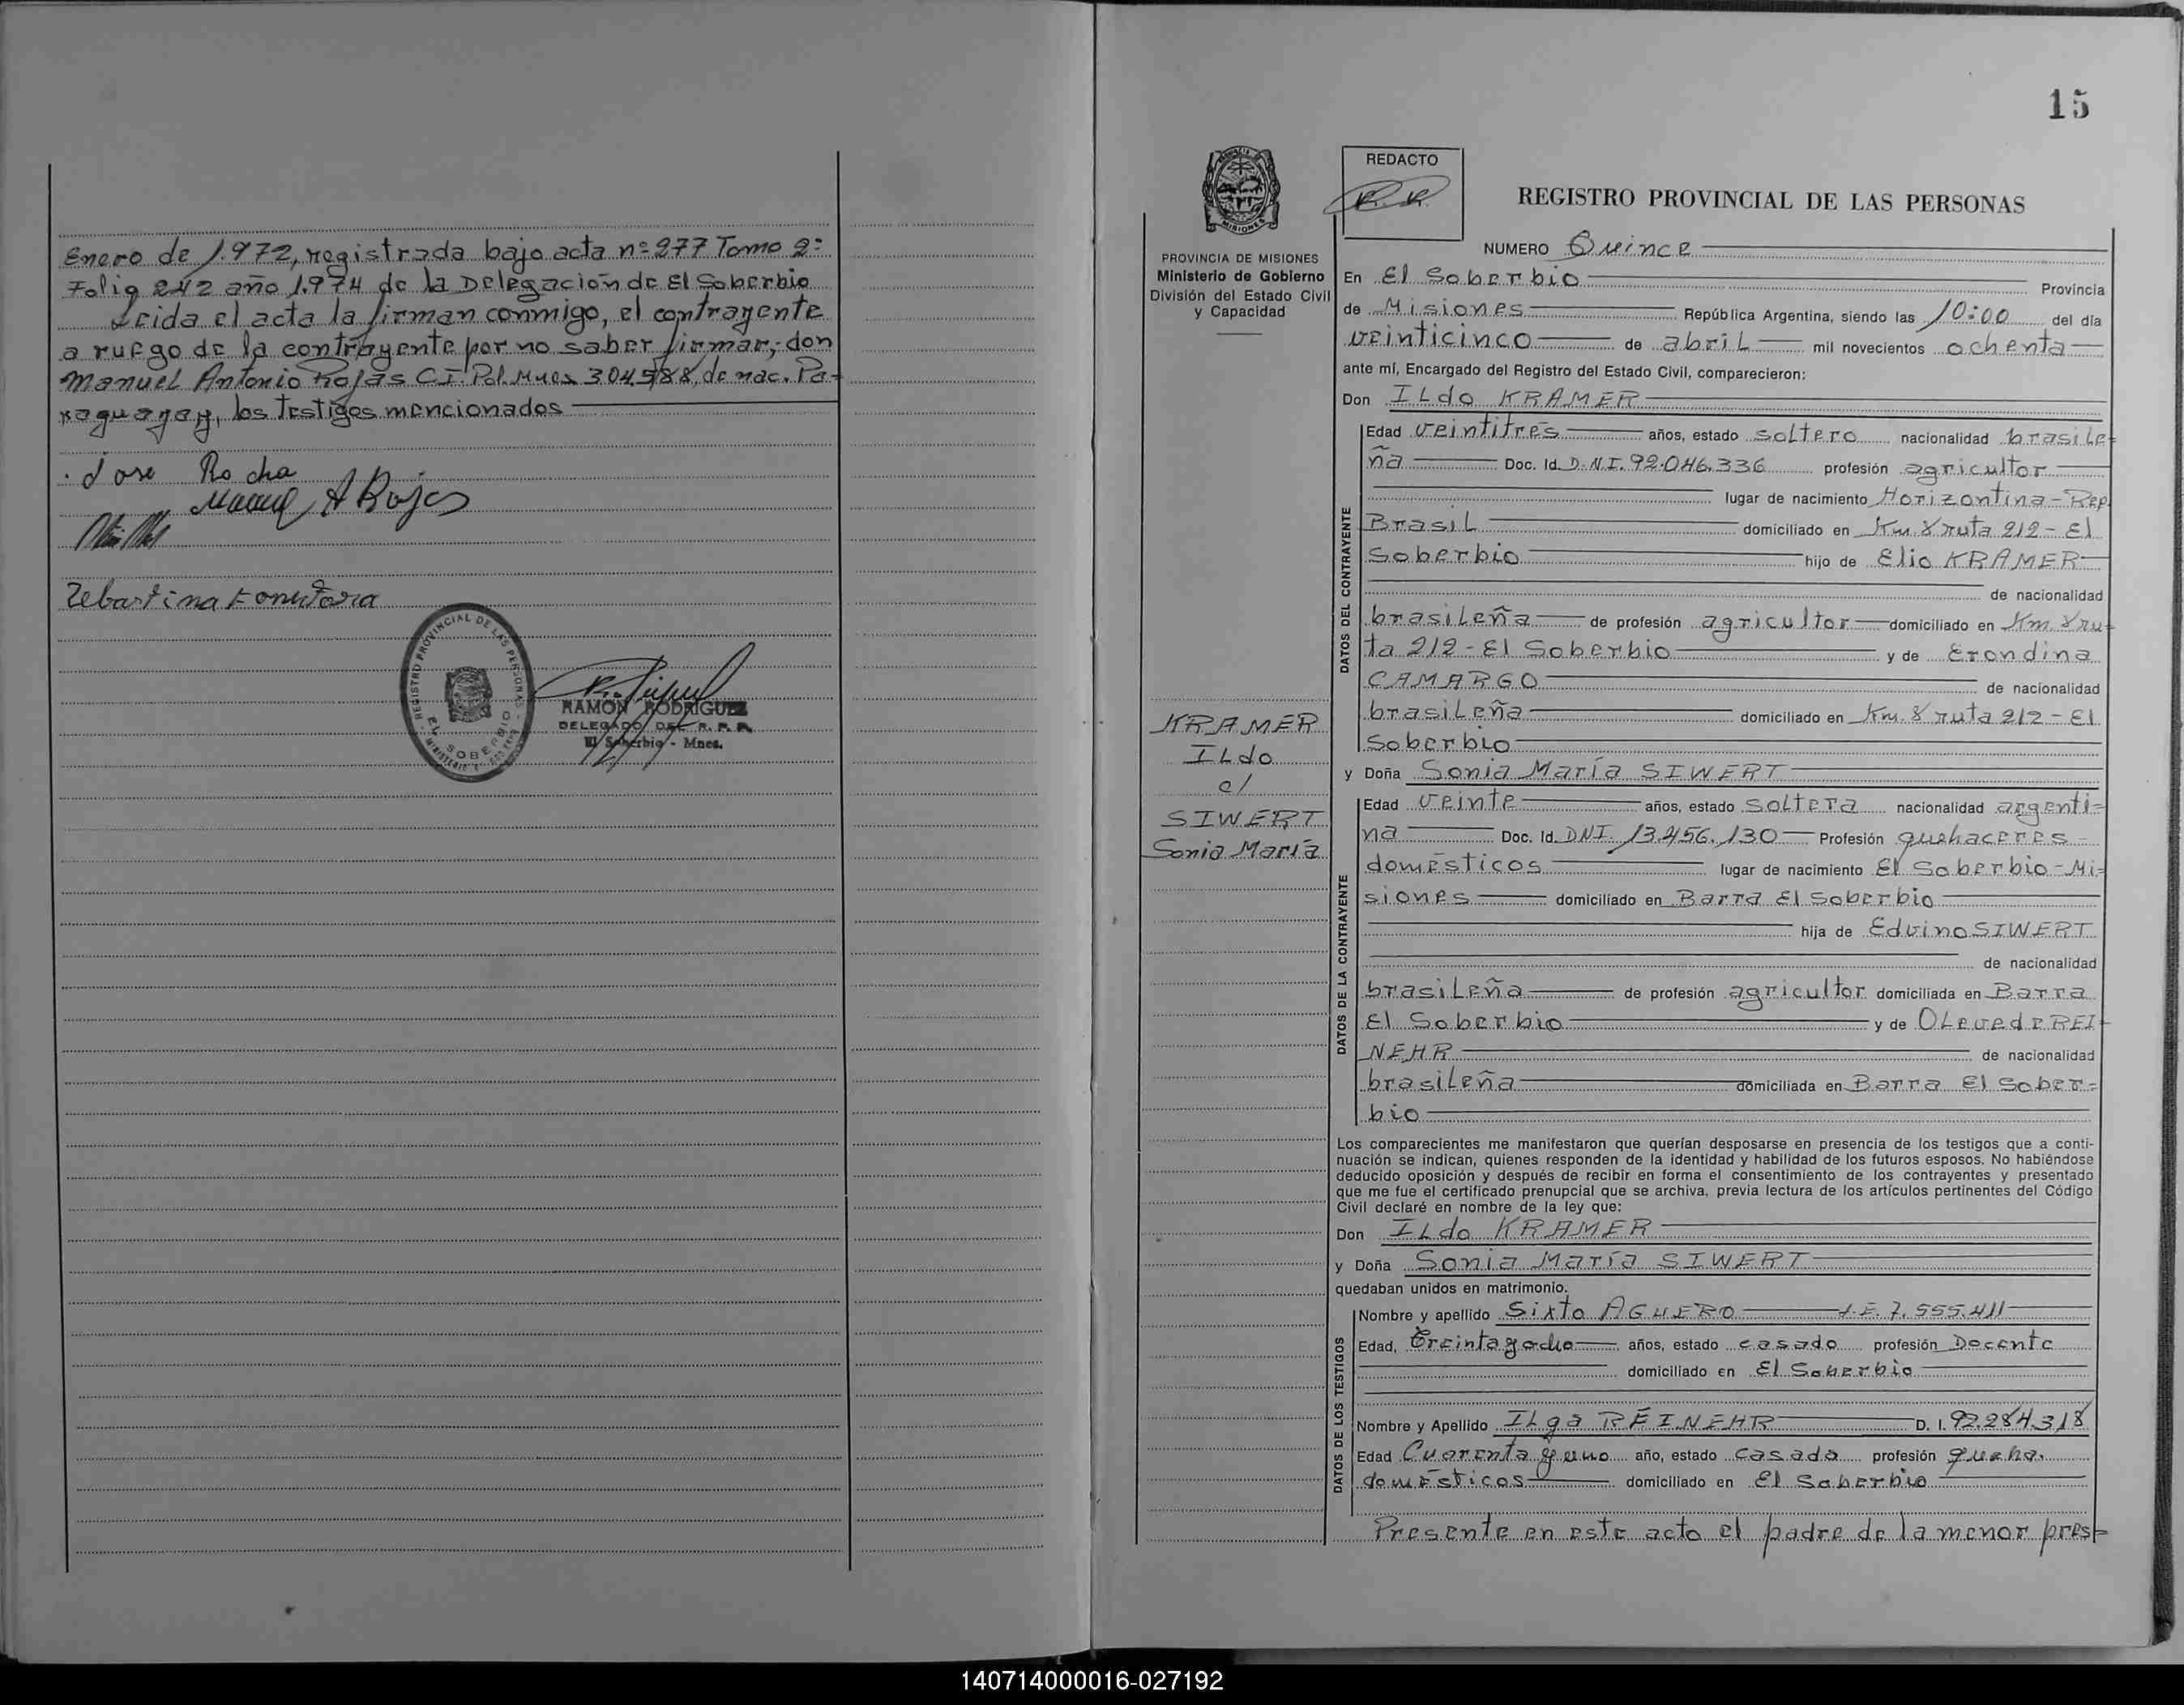 Enero de 1.972, registrada bajo acta nº 277 Tomo 2º
Folio 242 año 1.974 de la Delegación de El Soberbio
Leida el acta la firman conmigo, el contrayente
a ruego de la contrayente por no saber firmar, don
Manuel Antonio Rojas C.I. Pol. Mnes 304.588, de nac. Pa-
raguaya, los testigos mencionados
Jose Rocha
Manuel A Rojas
REGISTRO PROVINCIAL DE LAS PERSONAS
EL SOBERBIO
RAMON RODRIGUEZ
DELEGADO DEL R. P. P.
El Soberbio - Mnes.
15
PROVINCIA DE MISIONES
Ministerio de Gobierno
División del Estado Civil
y Capacidad
KRAMER
ILdo
c/
SIWERT
Sonia María
REDACTO
R.R.
REGISTRO PROVINCIAL DE LAS PERSONAS
NUMERO Quince
En El Soberbio Provincia
de Misiones República Argentina, siendo las 10:00 del día
veinticinco de abril mil novecientos ochenta
ante mí, Encargado del Registro del Estado Civil, comparecieron:
Don ILdo KRAMER
DATOS DEL CONTRAYENTE
Edad veintitrés años, estado soltero nacionalidad brasile-
ña Doc. Id. D.N.I. 92.046.336 profesión agricultor
lugar de nacimiento Horizontina - Rep.
Brasil domiciliado en Km. 8 ruta 212 - El
Soberbio hijo de Elio KRAMER
de nacionalidad
brasileña de profesión agricultor domiciliado en Km. 8 ru-
ta 212 - El Soberbio y de Erondina
CAMARGO de nacionalidad
brasileña domiciliado en Km. 8 ruta 212 - El
Soberbio
y Doña Sonia María SIWERT
DATOS DE LA CONTRAYENTE
Edad veinte años, estado soltera nacionalidad argenti-
na Doc. Id. DNI. 13.456.130 Profesión quehaceres
domésticos lugar de nacimiento El Soberbio - Mi-
siones domiciliado en Barra El Soberbio
hija de Edvino SIWERT
de nacionalidad
brasileña de profesión agricultor domiciliada en Barra
El Soberbio y de OLevede REI-
NEHR de nacionalidad
brasileña domiciliada en Barra El Sober-
bio
Los comparecientes me manifestaron que querían desposarse en presencia de los testigos que a conti-
nuación se indican, quienes responden de la identidad y habilidad de los futuros esposos. No habiéndose
deducido oposición y después de recibir en forma el consentimiento de los contrayentes y presentado
que me fue el certificado prenupcial que se archiva, previa lectura de los artículos pertinentes del Código
Civil declaré en nombre de la ley que:
Don ILdo KRAMER
y Doña Sonia María SIWERT
quedaban unidos en matrimonio.
DATOS DE LOS TESTIGOS
Nombre y apellido Sixto AGUERO L.E. 7.555.411
Edad, Treinta y ocho años, estado casado profesión Docente
domiciliado en El Soberbio
Nombre y Apellido ILga REINEHR D. I. 92.284.318
Edad Cuarenta y uno año, estado casada profesión queha.
domésticos domiciliado en El Soberbio
Presente en este acto el padre de la menor pres-
140714000016-027192